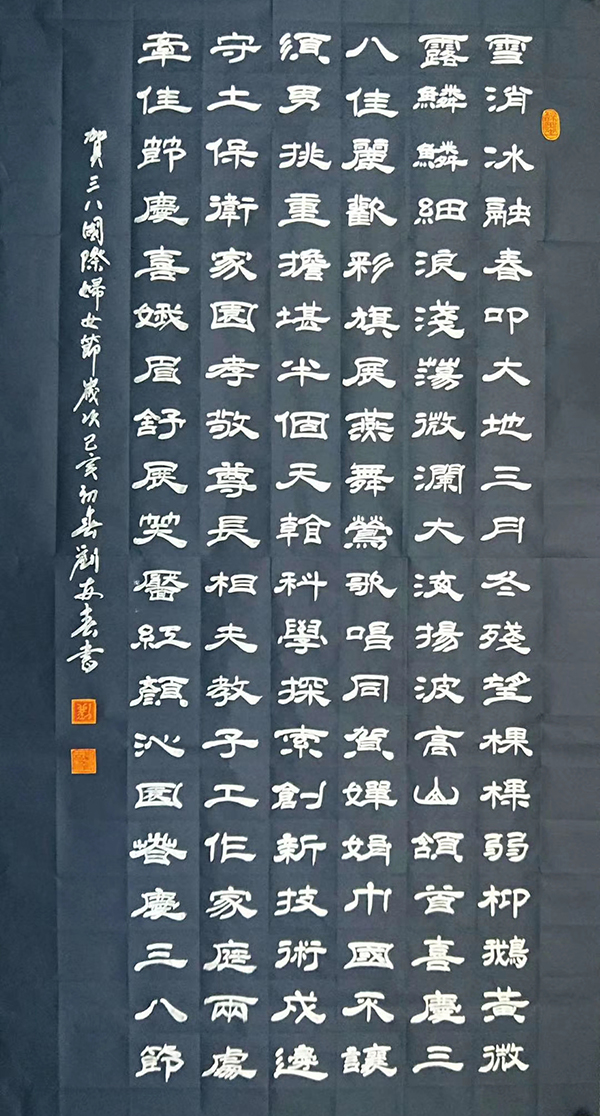 雪消冰融春叩大地三月冬殘望棵棵弱柳鵝黃微
露鱗鱗細浪淺蕩微瀾大海揚波高山頷首喜慶三
八佳麗歡彩旗展燕舞鶯歌唱同賀嬋娟巾國不讓
須男挑重擔堪半個天翰科學探索創新技術戍邊
守土保衛家園孝敬尊長相夫教子工作家庭兩處
牽佳節慶喜娥眉舒展笑靨紅顏沁園春慶三八節
賀三八國際婦女節歲次己亥初春劉春書